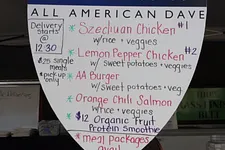 ALL AMERICAN DAVE
Delivery
Starts
@
12:30
$25 single
meals
*pickup
only
* Szechuan Chicken #1
w/rice + veggies
* Lemon Pepper Chicken #2
w/ sweet potatoes + veggies
* AA Burger
w/ Sweet potatoes + veg
* Orange Chili Salmon
w/rice + veggies
* $12 Organic Fruit
Protein Smoothie
* meal packages
avail